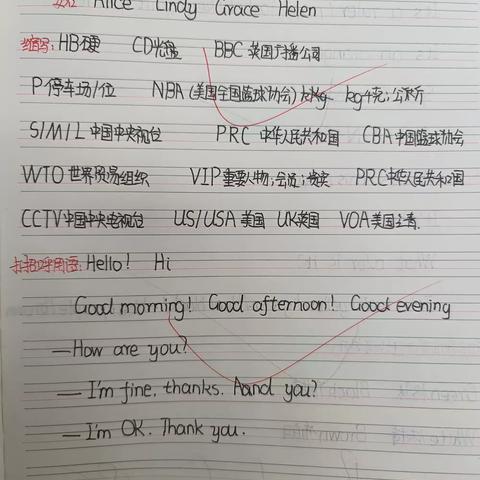 Alice Lindy Grace Helen
缩写: HB硬 CD光盘 BBC 英国广播公司
P 停车场/位 NBA (美国全国篮球协会) kg 千克;公斤
S/M/L 中国中央视台 PRC 中华人民共和国 CBA 中国篮球协会
WTO 世界贸易组织 VIP 重要人物;会员;贵宾 PRC中华人民共和国
CCTV中国中央电视台 US/USA 美国 UK英国 VOA美国之音.
打招呼用语: Hello! Hi
Good morning! Good afternoon! Good evening
—How are you?
— I'm fine, thanks. Aand you?
— I'm OK. Thank you.